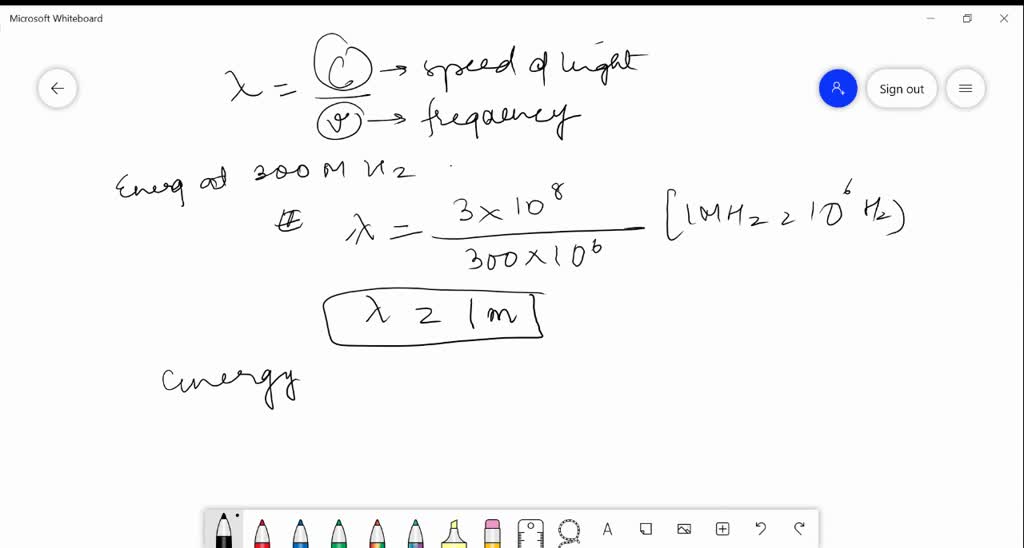 Microsoft Whiteboard
Sign out
λ = C → speed of light
ν → frequency
Energ at 300 M Hz
λ = 3 × 10^8 / 300 × 10^6 [1MHz = 10^6 Hz)
λ = 1m
energy
A